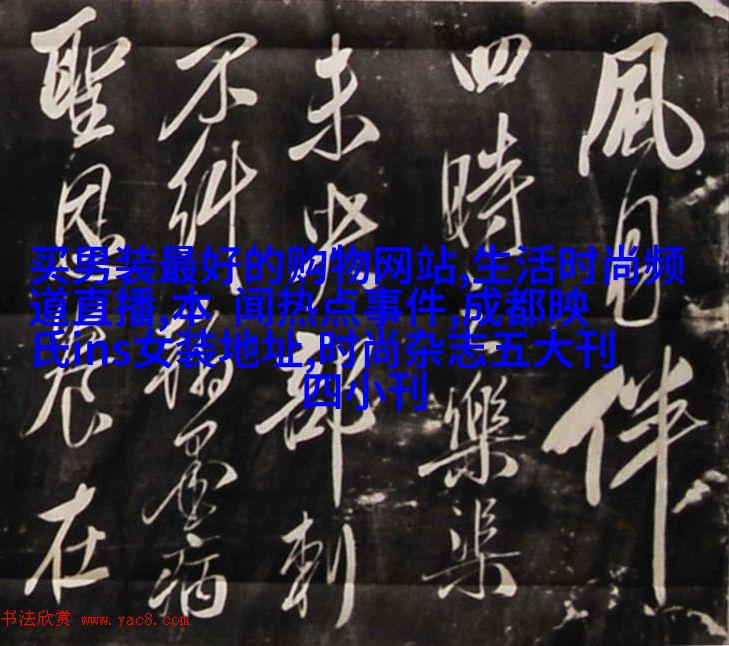 風月伴
四時樂渠
未部刺
不糾墨病
聖恩在
买男装最好的购物网站,生活时尚频
道直播,本 闻热点事件,成都映
氏ins女装地址,时尚杂志五大刊
四小刊
书法欣赏 www.yac8.com